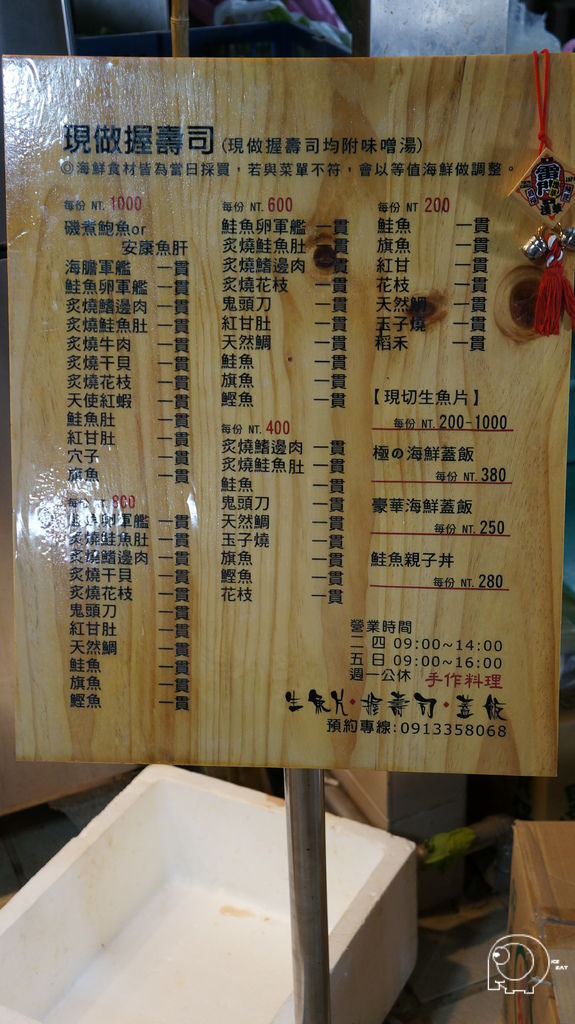 現做握壽司(現做握壽司均附味噌湯)
◎海鮮食材皆為當日採買,若與菜單不符,會以等值海鮮做調整。
每份 NT. 1000
磯煮鮑魚or
安康魚肝
海膽軍艦 一貫
鮭魚卵軍艦 一貫
炙燒鰭邊肉 一貫
炙燒鮭魚肚 一貫
炙燒牛肉 一貫
炙燒干貝 一貫
炙燒花枝 一貫
天使紅蝦 一貫
鮭魚肚 一貫
紅甘肚 一貫
穴子 一貫
旗魚 一貫
每份 NT. 800
鮭魚卵軍艦 一貫
炙燒鮭魚肚 一貫
炙燒鰭邊肉 一貫
炙燒干貝 一貫
炙燒花枝 一貫
鬼頭刀 一貫
紅甘肚 一貫
天然鯛 一貫
鮭魚 一貫
旗魚 一貫
鰹魚 一貫
每份 NT. 600
鮭魚卵軍艦 一貫
炙燒鮭魚肚 一貫
炙燒鰭邊肉 一貫
炙燒花枝 一貫
鬼頭刀 一貫
紅甘肚 一貫
天然鯛 一貫
鮭魚 一貫
旗魚 一貫
鰹魚 一貫
每份 NT. 400
炙燒鰭邊肉 一貫
炙燒鮭魚肚 一貫
鮭魚 一貫
鬼頭刀 一貫
天然鯛 一貫
玉子燒 一貫
旗魚 一貫
鰹魚 一貫
花枝 一貫
每份 NT. 200
鮭魚 一貫
旗魚 一貫
紅甘 一貫
花枝 一貫
天然鯛 一貫
玉子燒 一貫
稻禾 一貫
【現切生魚片】
每份 NT. 200-1000
極の海鮮蓋飯
每份 NT. 380
豪華海鮮蓋飯
每份 NT. 250
鮭魚親子丼
每份 NT. 280
營業時間
二 四 09:00~14:00
五 日 09:00~16:00
週一公休 手作料理
生魚片・握壽司・蓋飯
預約專線:0913358068